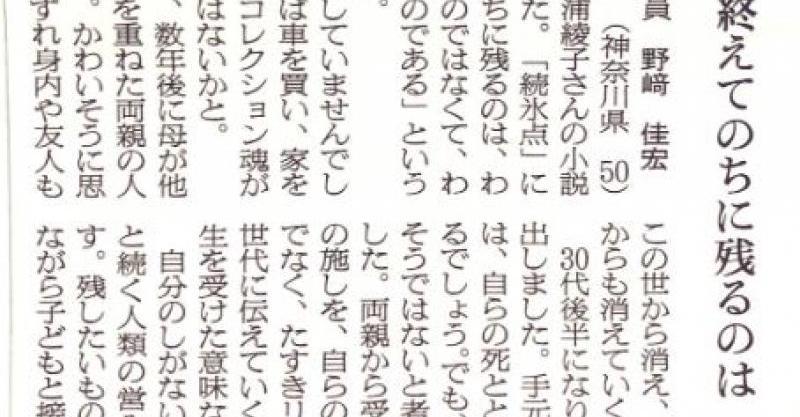 終えてのちに残るのは
員　野﨑　佳宏
（神奈川県　50）
浦綾子さんの小説
た。「続氷点」に
ちに残るのは、わ
のではなくて、わ
のである」という
。
していませんでし
ば車を買い、家を
コレクション魂が
はないかと。
、数年後に母が他
を重ねた両親の人
。かわいそうに思
ずれ身内や友人も
この世から消え、
からも消えていく
30代後半になり
出しました。手元
は、自らの死とと
るでしょう。でも、
そうではないと考
した。両親から受
の施しを、自らの
でなく、たすきリ
世代に伝えていく
生を受けた意味な
自分のしがない
と続く人類の営み
す。残したいもの
ながら子どもと接